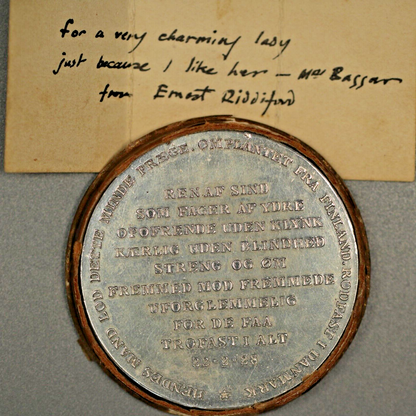 for a very charming lady
just because I like her — Mrs
from Ernest Riddiford
HENDES MAND LOD DETTE MINDE PRÆGE. OMPLANTET FRA FINLAND. RODFÆST I DANMARK
REN AF SIND
SOM FAGER AF YDRE
OPOFRENDE UDEN KLYNK
KÆRLIG UDEN BLINDHED
STRENG OG ØM
FREMMED MOD FREMMEDE
UFORGLEMMELIG
FOR DE FAA
TROFAST I ALT